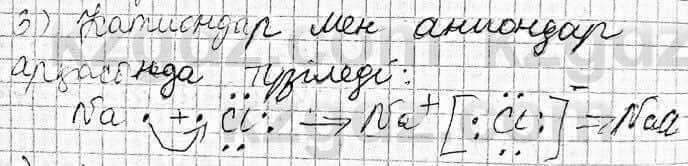 3) Катиондар мен аниондар
арқасында түзіледі:
Na· + ·Cl: → Na⁺ [:Cl:]⁻ → NaCl